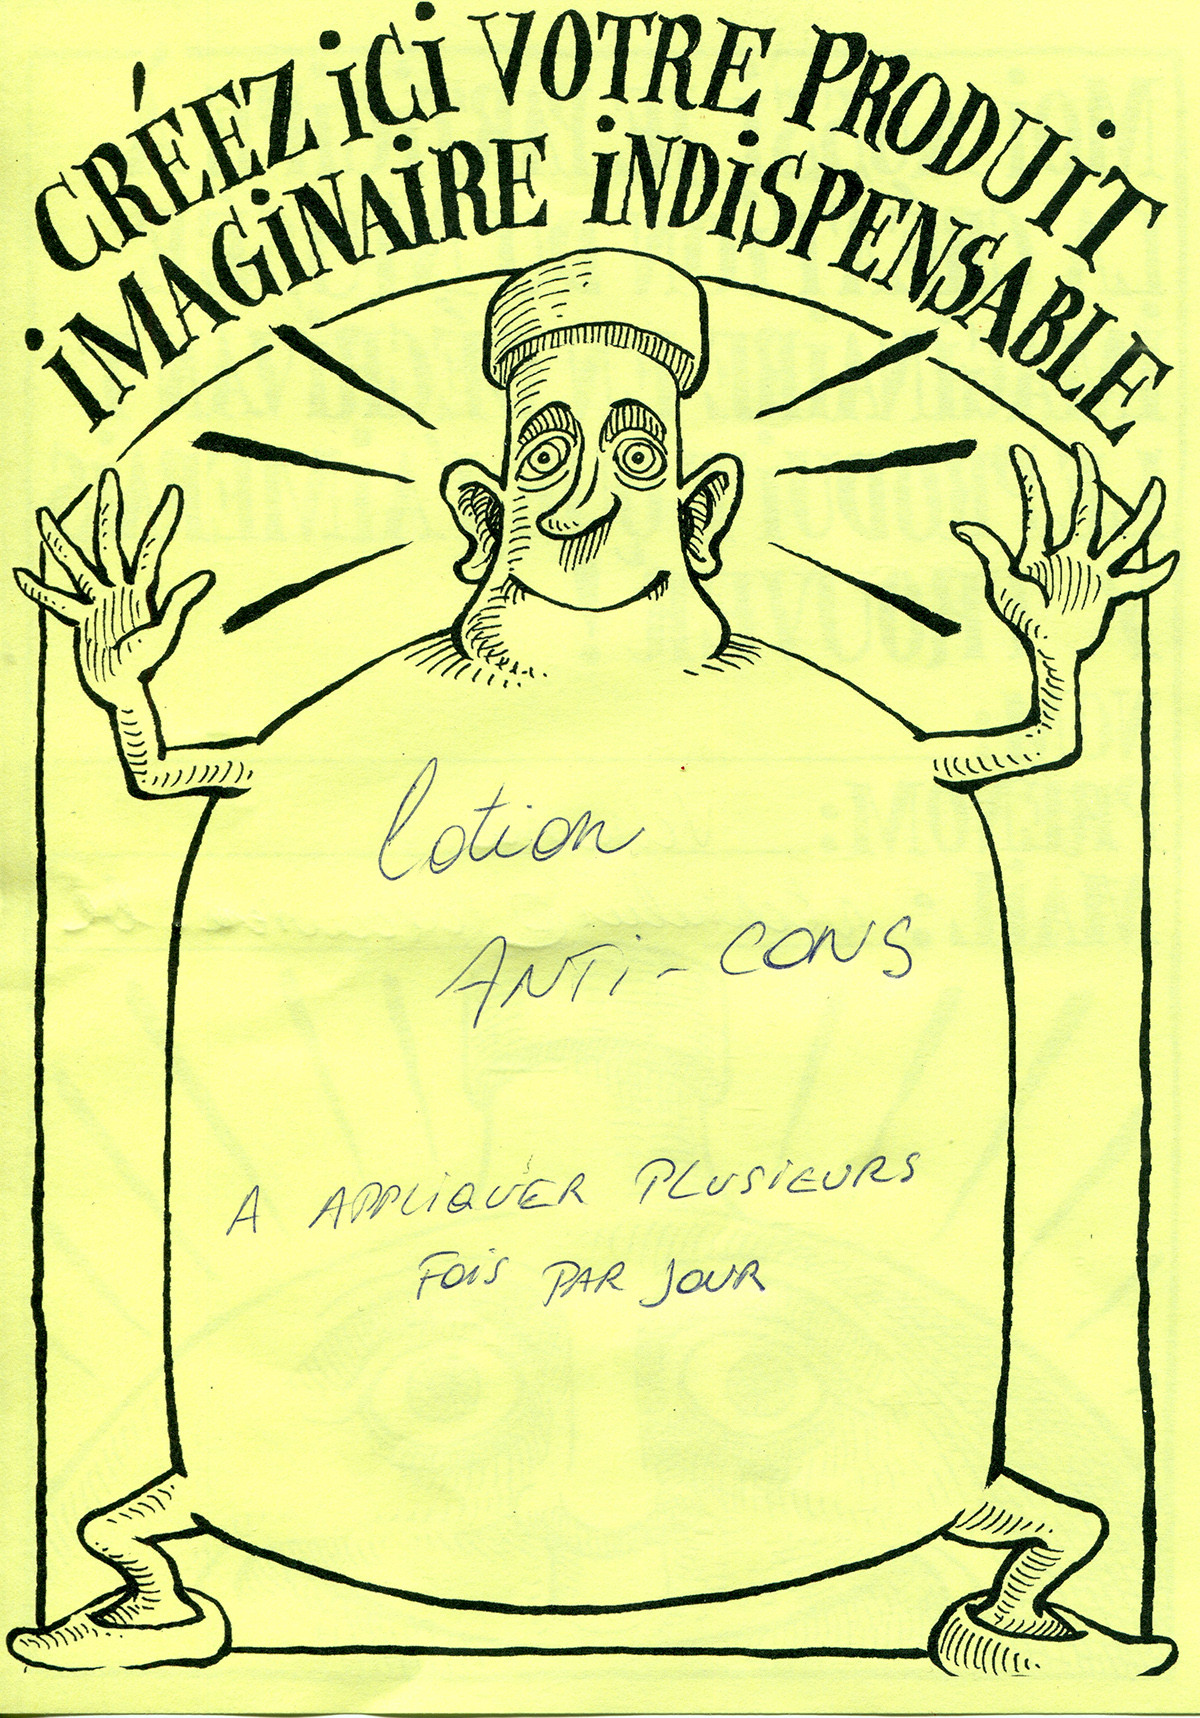 CRÉEZ iCi VOTRE PRODUiT
iMAGiNAiRE iNDiSPENSABLE
lotion
ANTi-CONS
A APPLIQUER PLUSiEURS
FOiS PAR JOUR